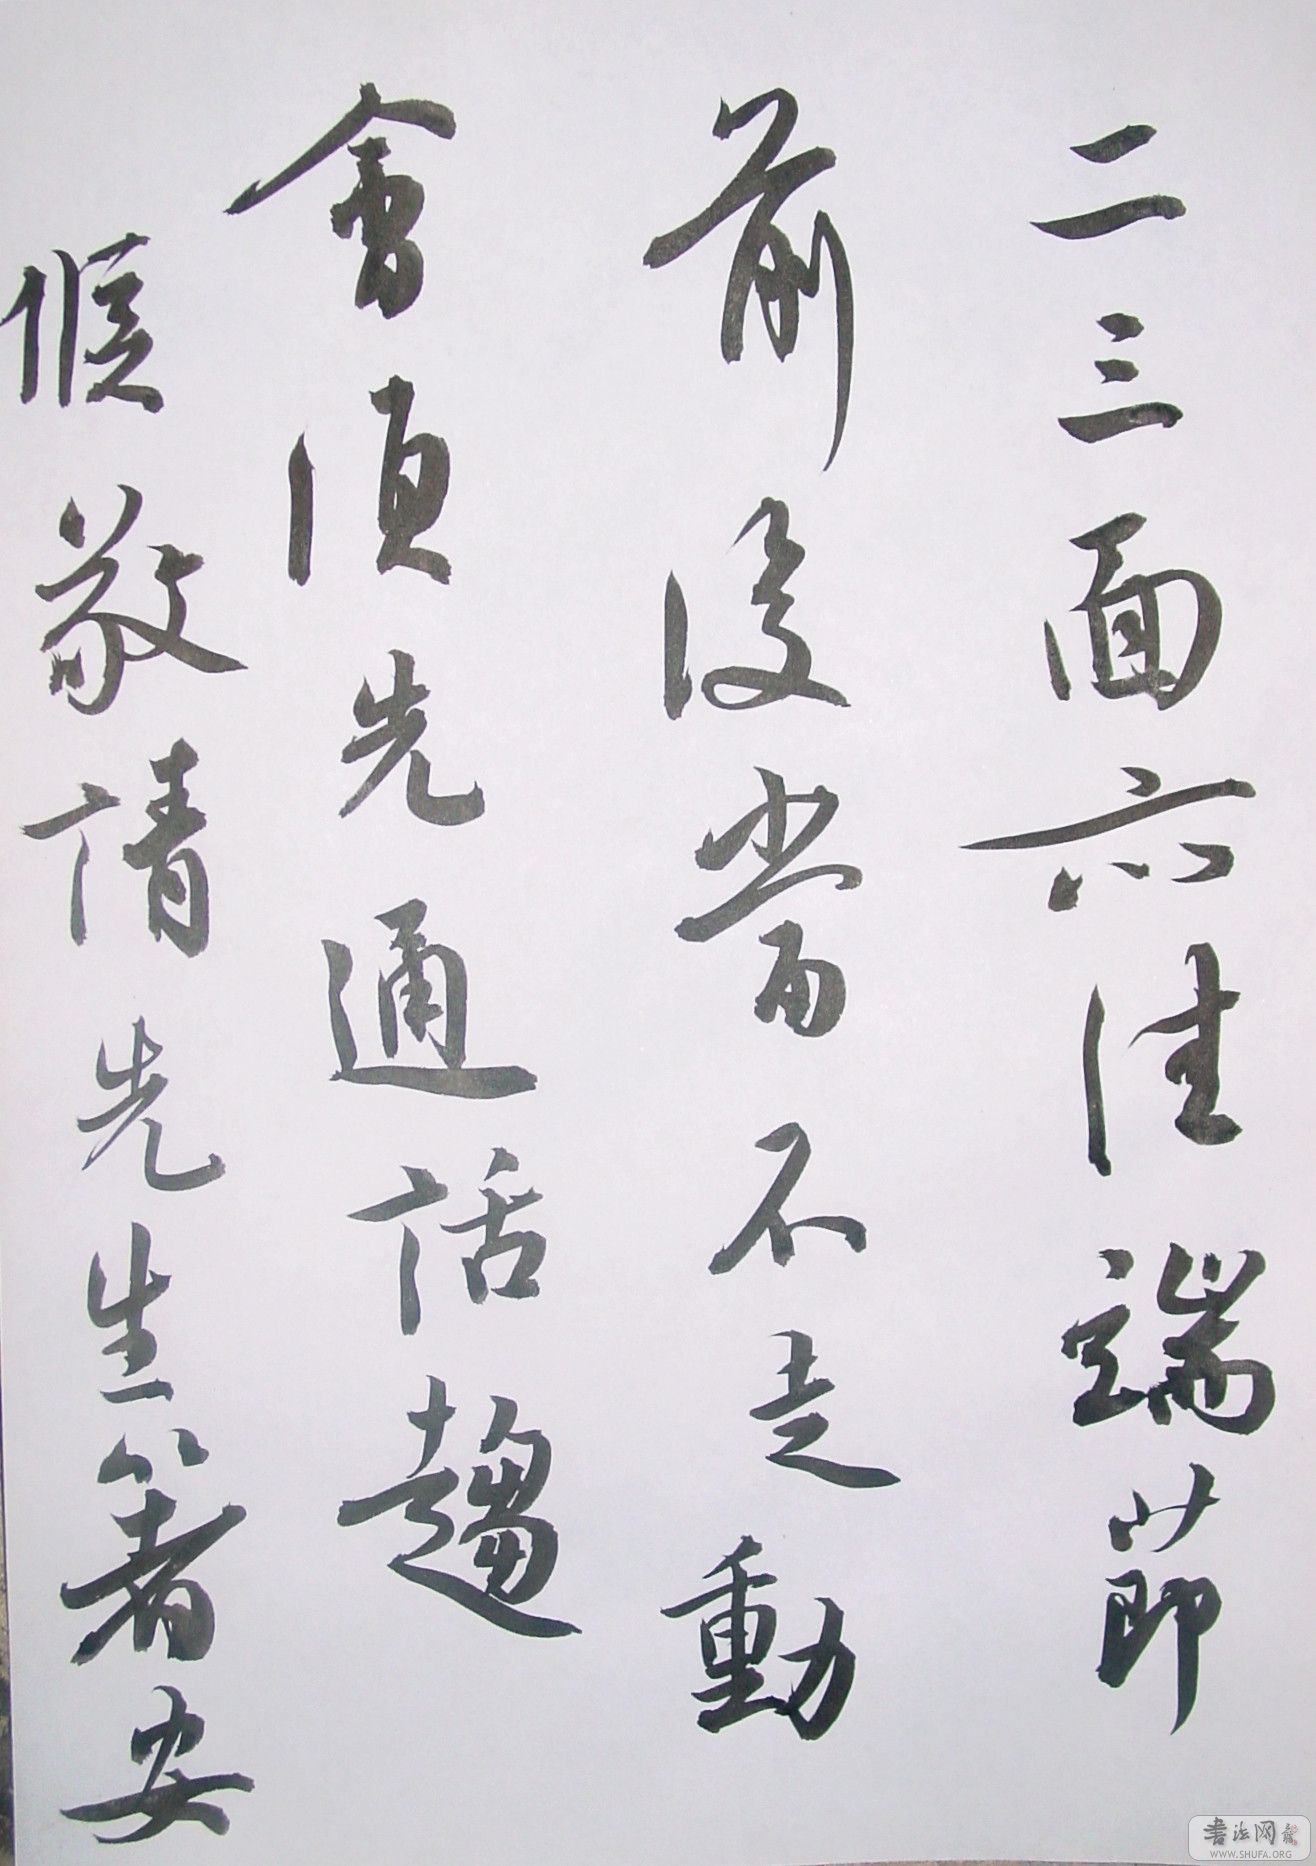 二三面六佳端節
前後當不走動
會須先通話趨
候敬請先生箸安
書法网
WWW.SHUFA.ORG